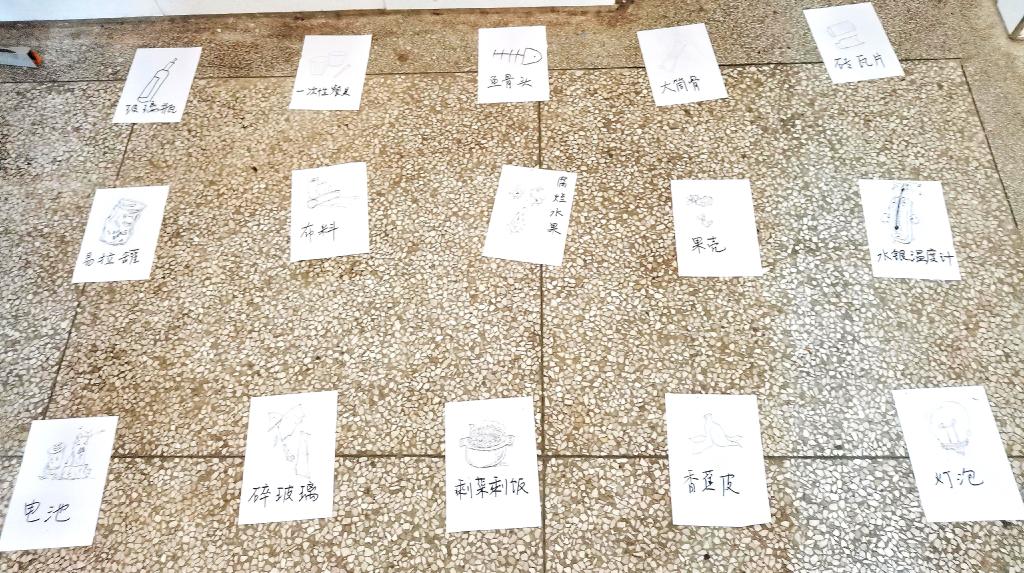 玻璃瓶
一次性餐具
鱼骨头
大筒骨
砖瓦片
易拉罐
布料
腐烂水果
果壳
水银温度计
电池
碎玻璃
剩菜剩饭
香蕉皮
灯泡